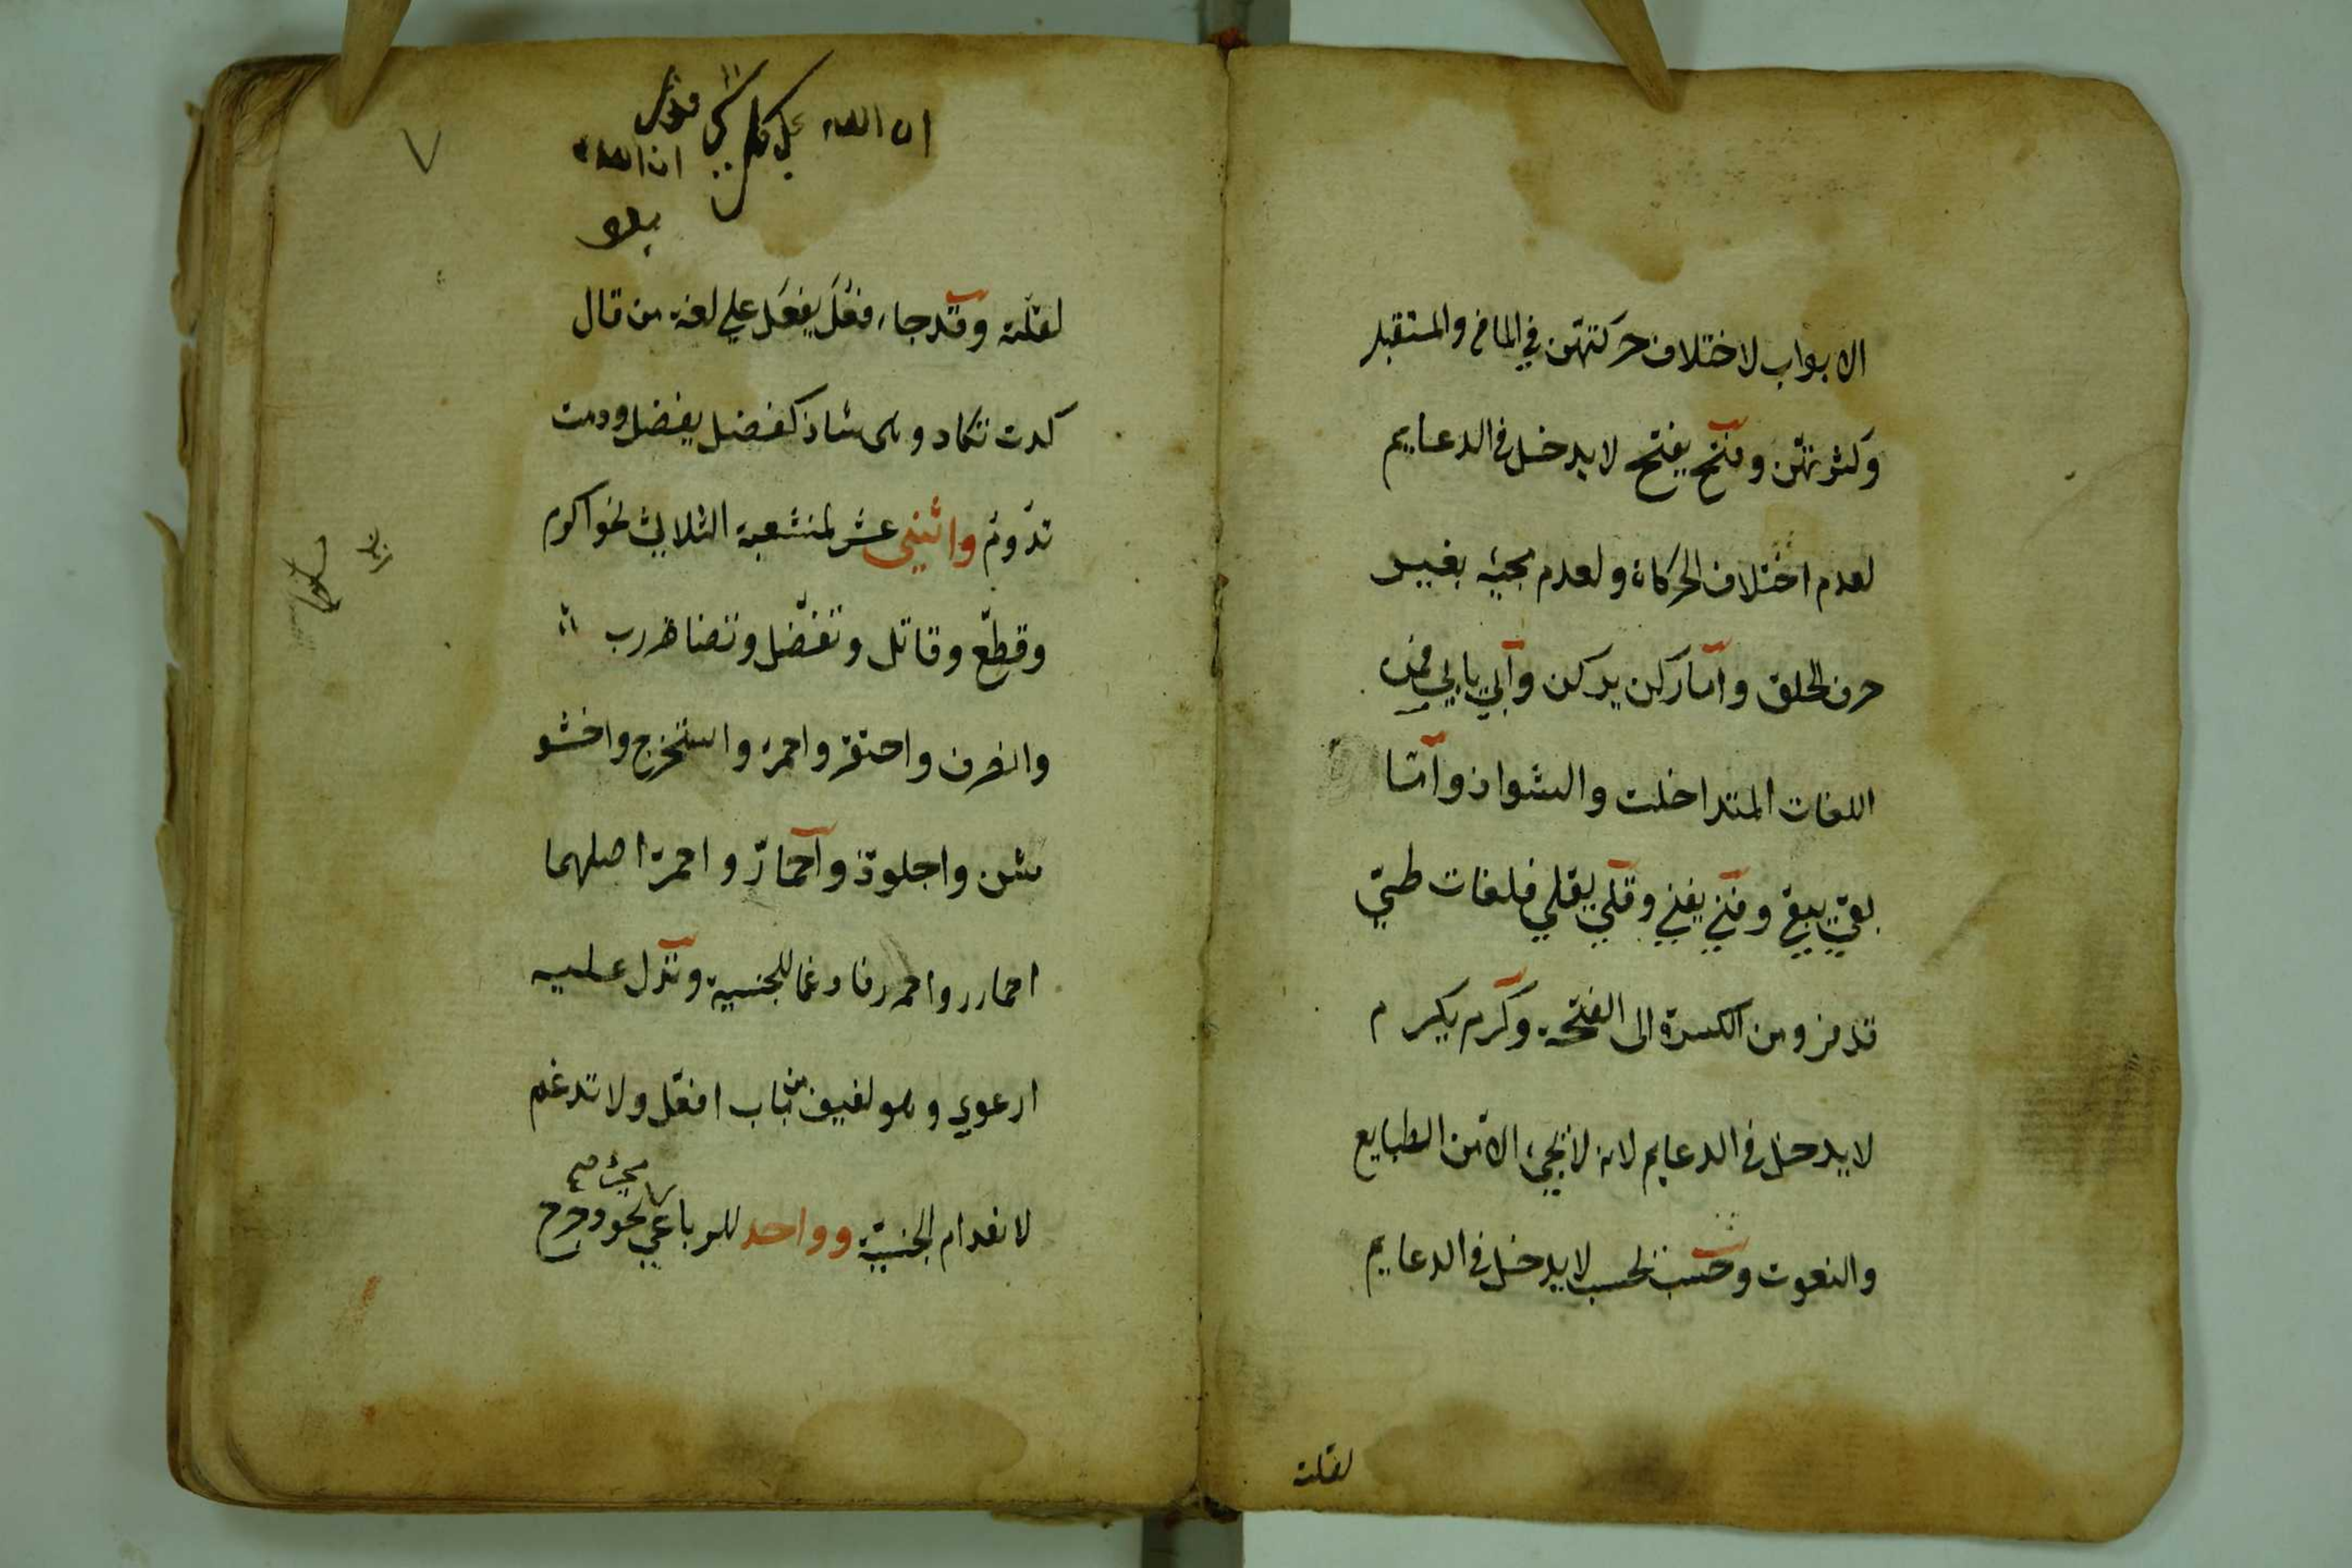 الابواب لاختلاف حركتهن في الماضي والمستقبل
وكثرتهن وفتح يفتح لا يدخل في الدعايم
لعدم اختلاف الحركاة ولعدم مجيئه بغيير
حرف الحلق واما ركن يركن وابي يابي فمن
اللغات المتداخلت والشواذ واما
بقي يبقي وفني يفني وقلي يقلي فلغات طيّ
قد فروا من الكسرة الى الفتحة وكرم يكرم
لا يدخل في الدعايم لانه لا يجيء الا من الطبايع
والنعوت وحسب يحسب لا يدخل في الدعايم
لقلته
ان الله على كل شي قدير
ان الله
٧
لقلّته وقد جاء فعُل يفعَل علي لغة من قال
كدت تكاد وهي شاذ كفضل يفضل ودمت
تدوم واثني عشر لمنشعبة الثلاثي نحو اكرم
وقطّع وقاتل وتفضّل وتضارب
وانصرف واحتقر واحمرّ واستخرج واخشو
شن واجلوّذ واحمارّ واحمرّ اصلهما
احمارر واحمرر فادغما للجنسية وتدل عليه
ارعوي وهو لفيف من باب افعلّ ولا تدغم
لانعدام الجنسيّة وواحد للرباعي نحو دحرج